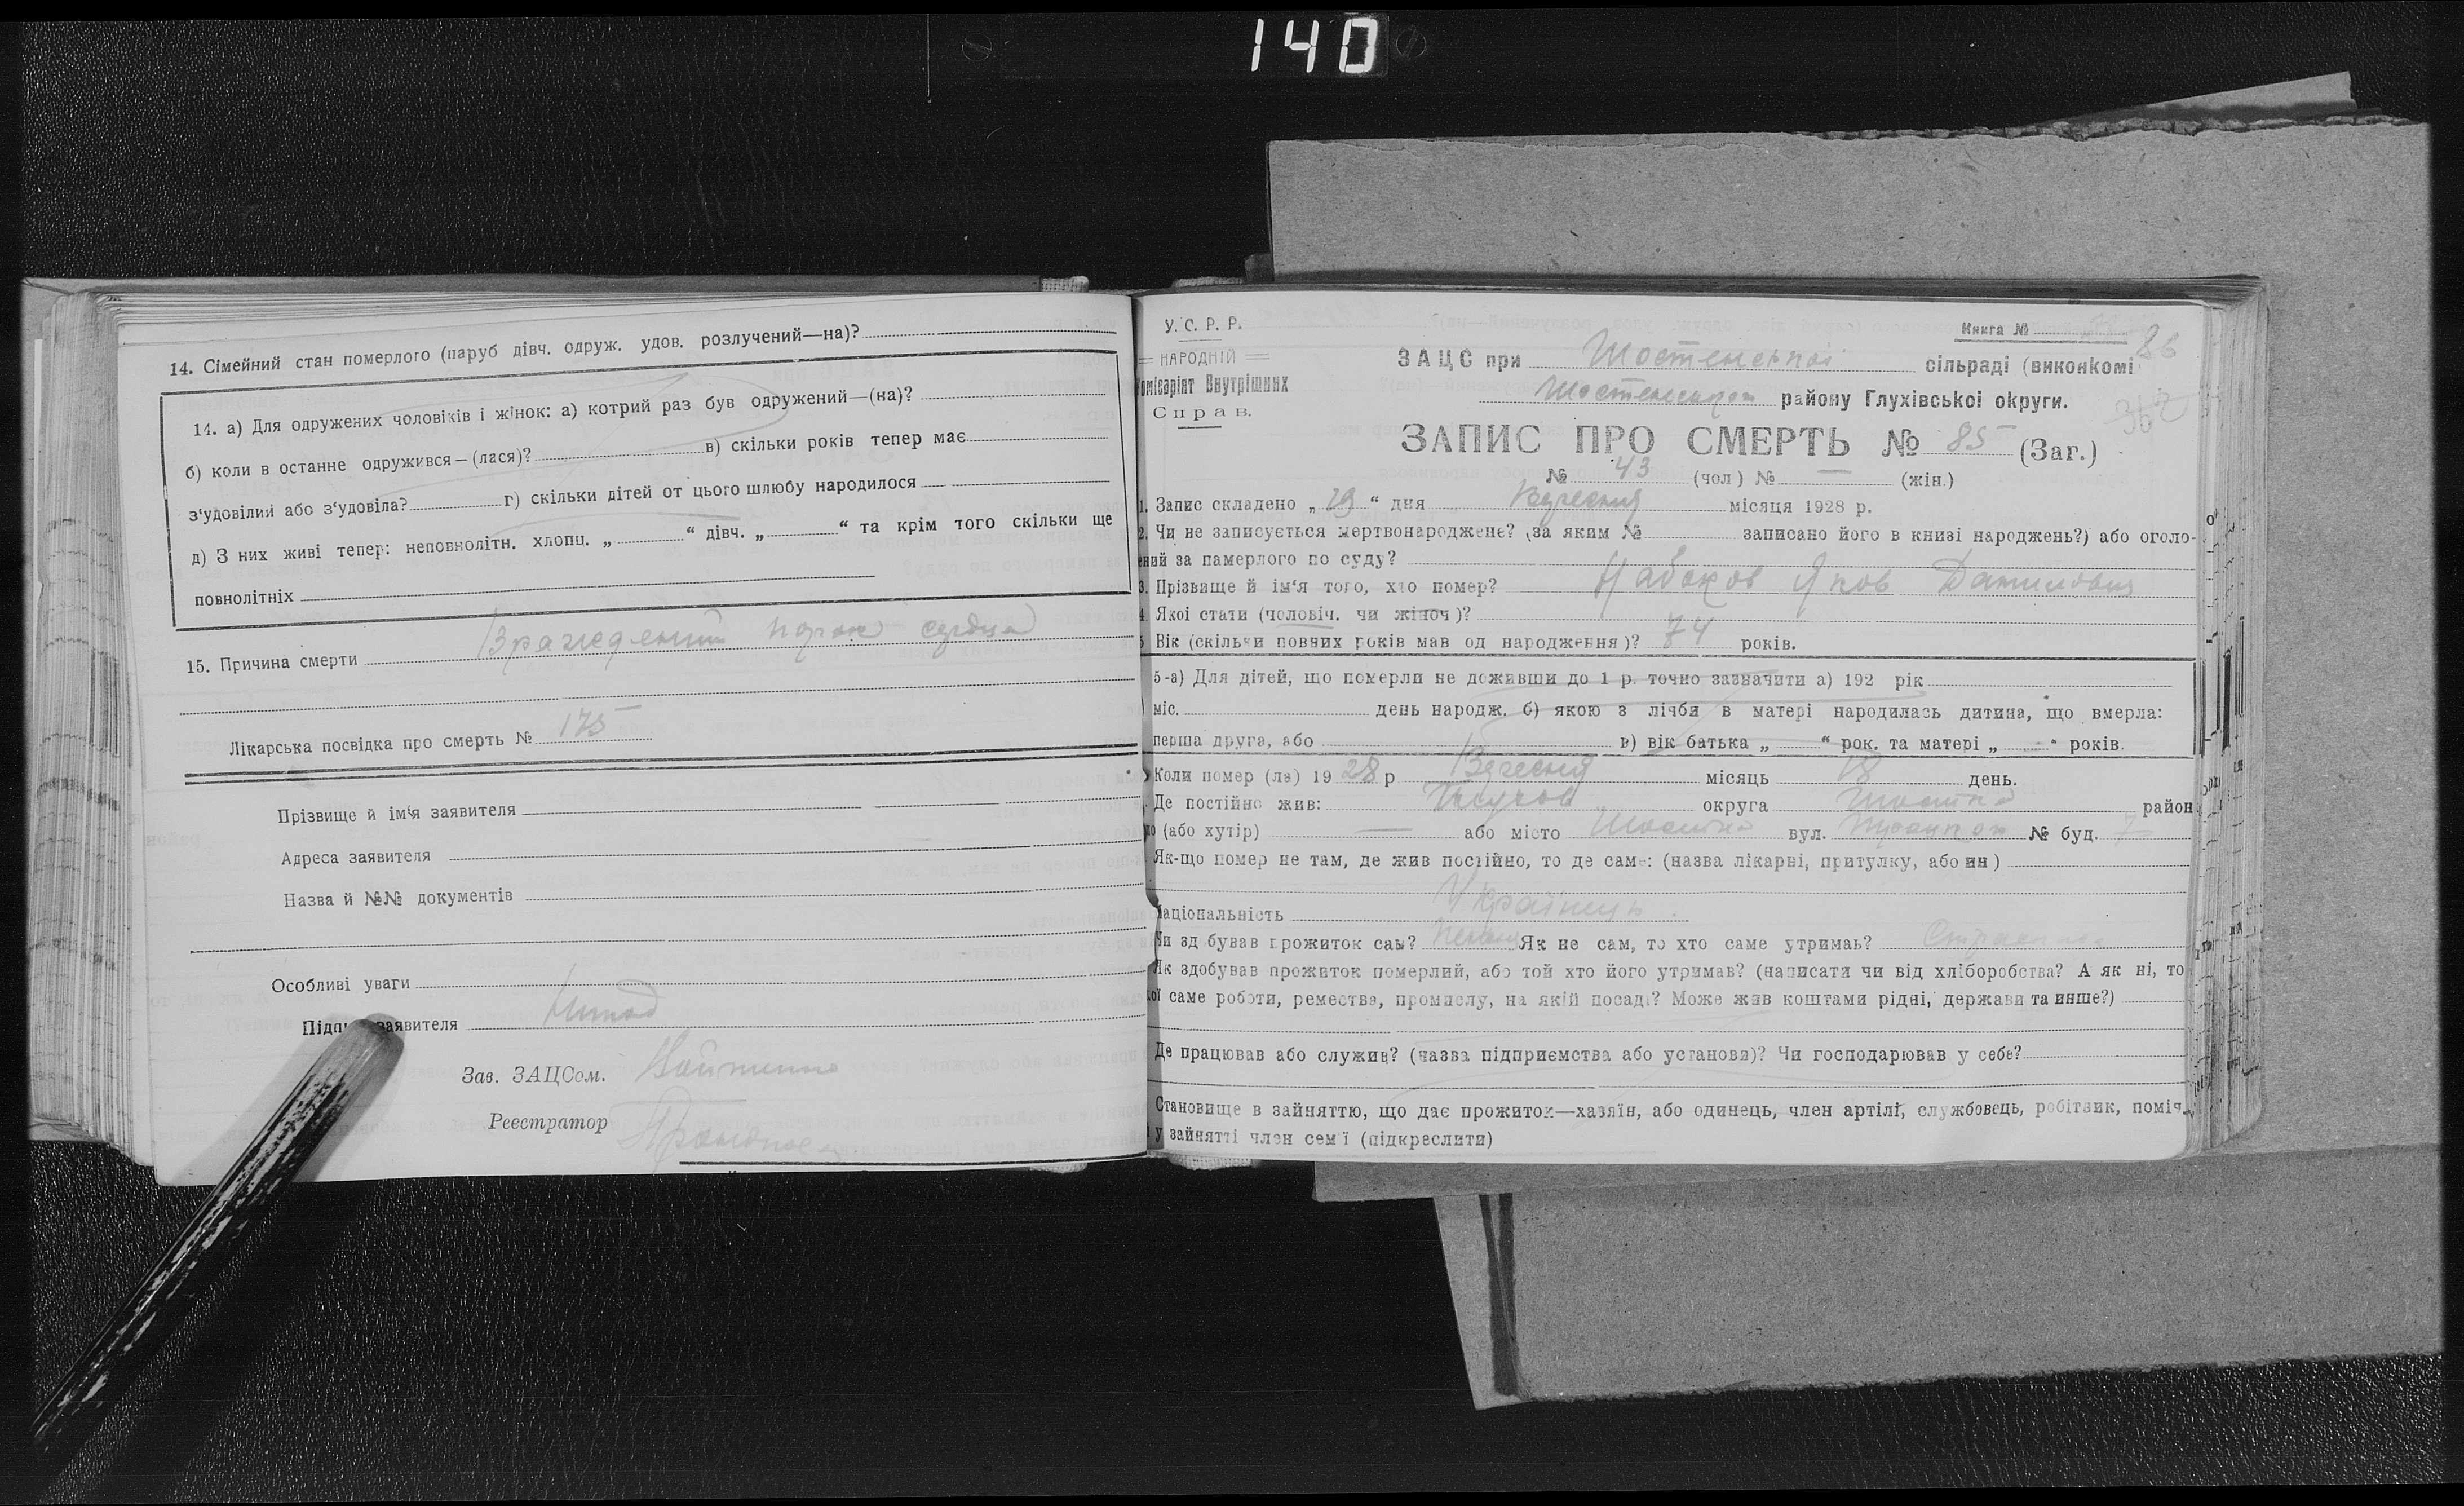 140
14. Сімейний стан померлого (паруб дівч. одруж. удов. розлучений—на)?
14. а) Для одружених чоловіків і жінок: а) котрий раз був одружений—(на)?
б) коли в останнє одружився—(лася)? в) скільки років тепер має
з'удовілий або з'удовіла? г) скільки дітей от цього шлюбу народилося
д) З них живі тепер: неповнолітн. хлопц. „ “ дівч. „ “ та крім того скільки ще
повнолітніх
15. Причина смерти порок сердца
Лікарська посвідка про смерть № 175
Прізвище й ім'я заявителя
Адреса заявителя
Назва й №№ документів
Особливі уваги
Підп заявителя
Зав. ЗАЦСом.
Реєстратор
У. С. Р. Р.
НАРОДНІЙ
Комісаріят Внутрішних
Справ.
Книга №
86
ЗАЦС при Шостенській сільраді (виконкомі
Шостенськом району Глухівської округи.
ЗАПИС ПРО СМЕРТЬ № 85 (Заг.)
№ 43 (чол) № — (жін.)
1. Запис складено „ 19 “ дня Вересня місяця 1928 р.
2. Чи не записується мертвонароджене? (за яким № записано його в книзі народжень?) або оголо-
ений за памерлого по суду?
3. Прізвище й ім'я того, хто помер? Набоков Яков Данилович
4. Якої стати (чоловіч. чи жіноч)?
5 Вік (скільки повних років мав од народження)? 74 років.
5-а) Для дітей, що померли не доживши до 1 р. точно зазначити а) 192 рік
міс. день народж. б) якою з лічби в матері народилась дитина, що вмерла:
перша друга, або в) вік батька „ “ рок. та матері „ “ років.
Коли помер (ла) 1928 р Вересня місяць 18 день.
Де постійно жив: Глухов округа Шостка район
(або хутір) — або місто Шостка вул. № буд. 7
Як-що помер не там, де жив постійно, то де саме: (назва лікарні, притулку, або ин)
Національність Українець
Чи здобував прожиток сам? Як не сам, то хто саме утримав?
Як здобував прожиток померлий, або той хто його утримав? (написати чи від хліборобства? А як ні, то
кої саме роботи, ремества, промислу, на якій посаді? Може жив коштами рідні, держави та инше?)
Де працював або служив? (назва підприємства або установи)? Чи господарював у себе?
Становище в зайняттю, що дає прожиток—хазяїн, або одинець, член артілі, службовець, робітник, поміч.
у зайнятті член сем'ї (підкреслити)